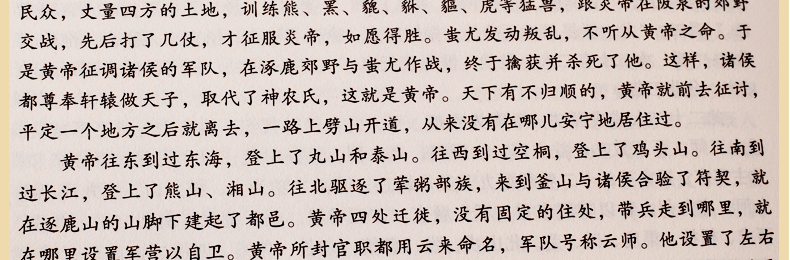 民众，丈量四方的土地，训练熊、罴、貔、貅、貙、虎等猛兽，跟炎帝在阪泉的郊野
交战，先后打了几仗，才征服炎帝，如愿得胜。蚩尤发动叛乱，不听从黄帝之命。于
是黄帝征调诸侯的军队，在涿鹿郊野与蚩尤作战，终于擒获并杀死了他。这样，诸侯
都尊奉轩辕做天子，取代了神农氏，这就是黄帝。天下有不归顺的，黄帝就前去征讨，
平定一个地方之后就离去，一路上劈山开道，从来没有在哪儿安宁地居住过。
黄帝往东到过东海，登上了丸山和泰山。往西到过空桐，登上了鸡头山。往南到
过长江，登上了熊山、湘山。往北驱逐了荤粥部族，来到釜山与诸侯合验了符契，就
在逐鹿山的山脚下建起了都邑。黄帝四处迁徙，没有固定的住处，带兵走到哪里，就
在哪里设置军营以自卫。黄帝所封官职都用云来命名，军队号称云师。他设置了左右